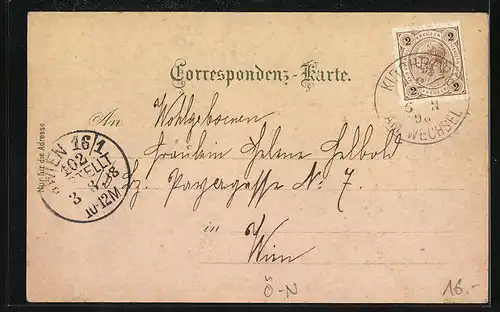 Correspondenz-Karte.
An
Wohlgeboren
Fräulein Helene Helbold
Payergasse No 7.
in
Wien
Nur für die Adresse
WIEN 16/1
BESTELLT
3 8.98
10-12M
KIRCHBERG
AM WECHSEL
2 2
2 2
Ö-N
16.-